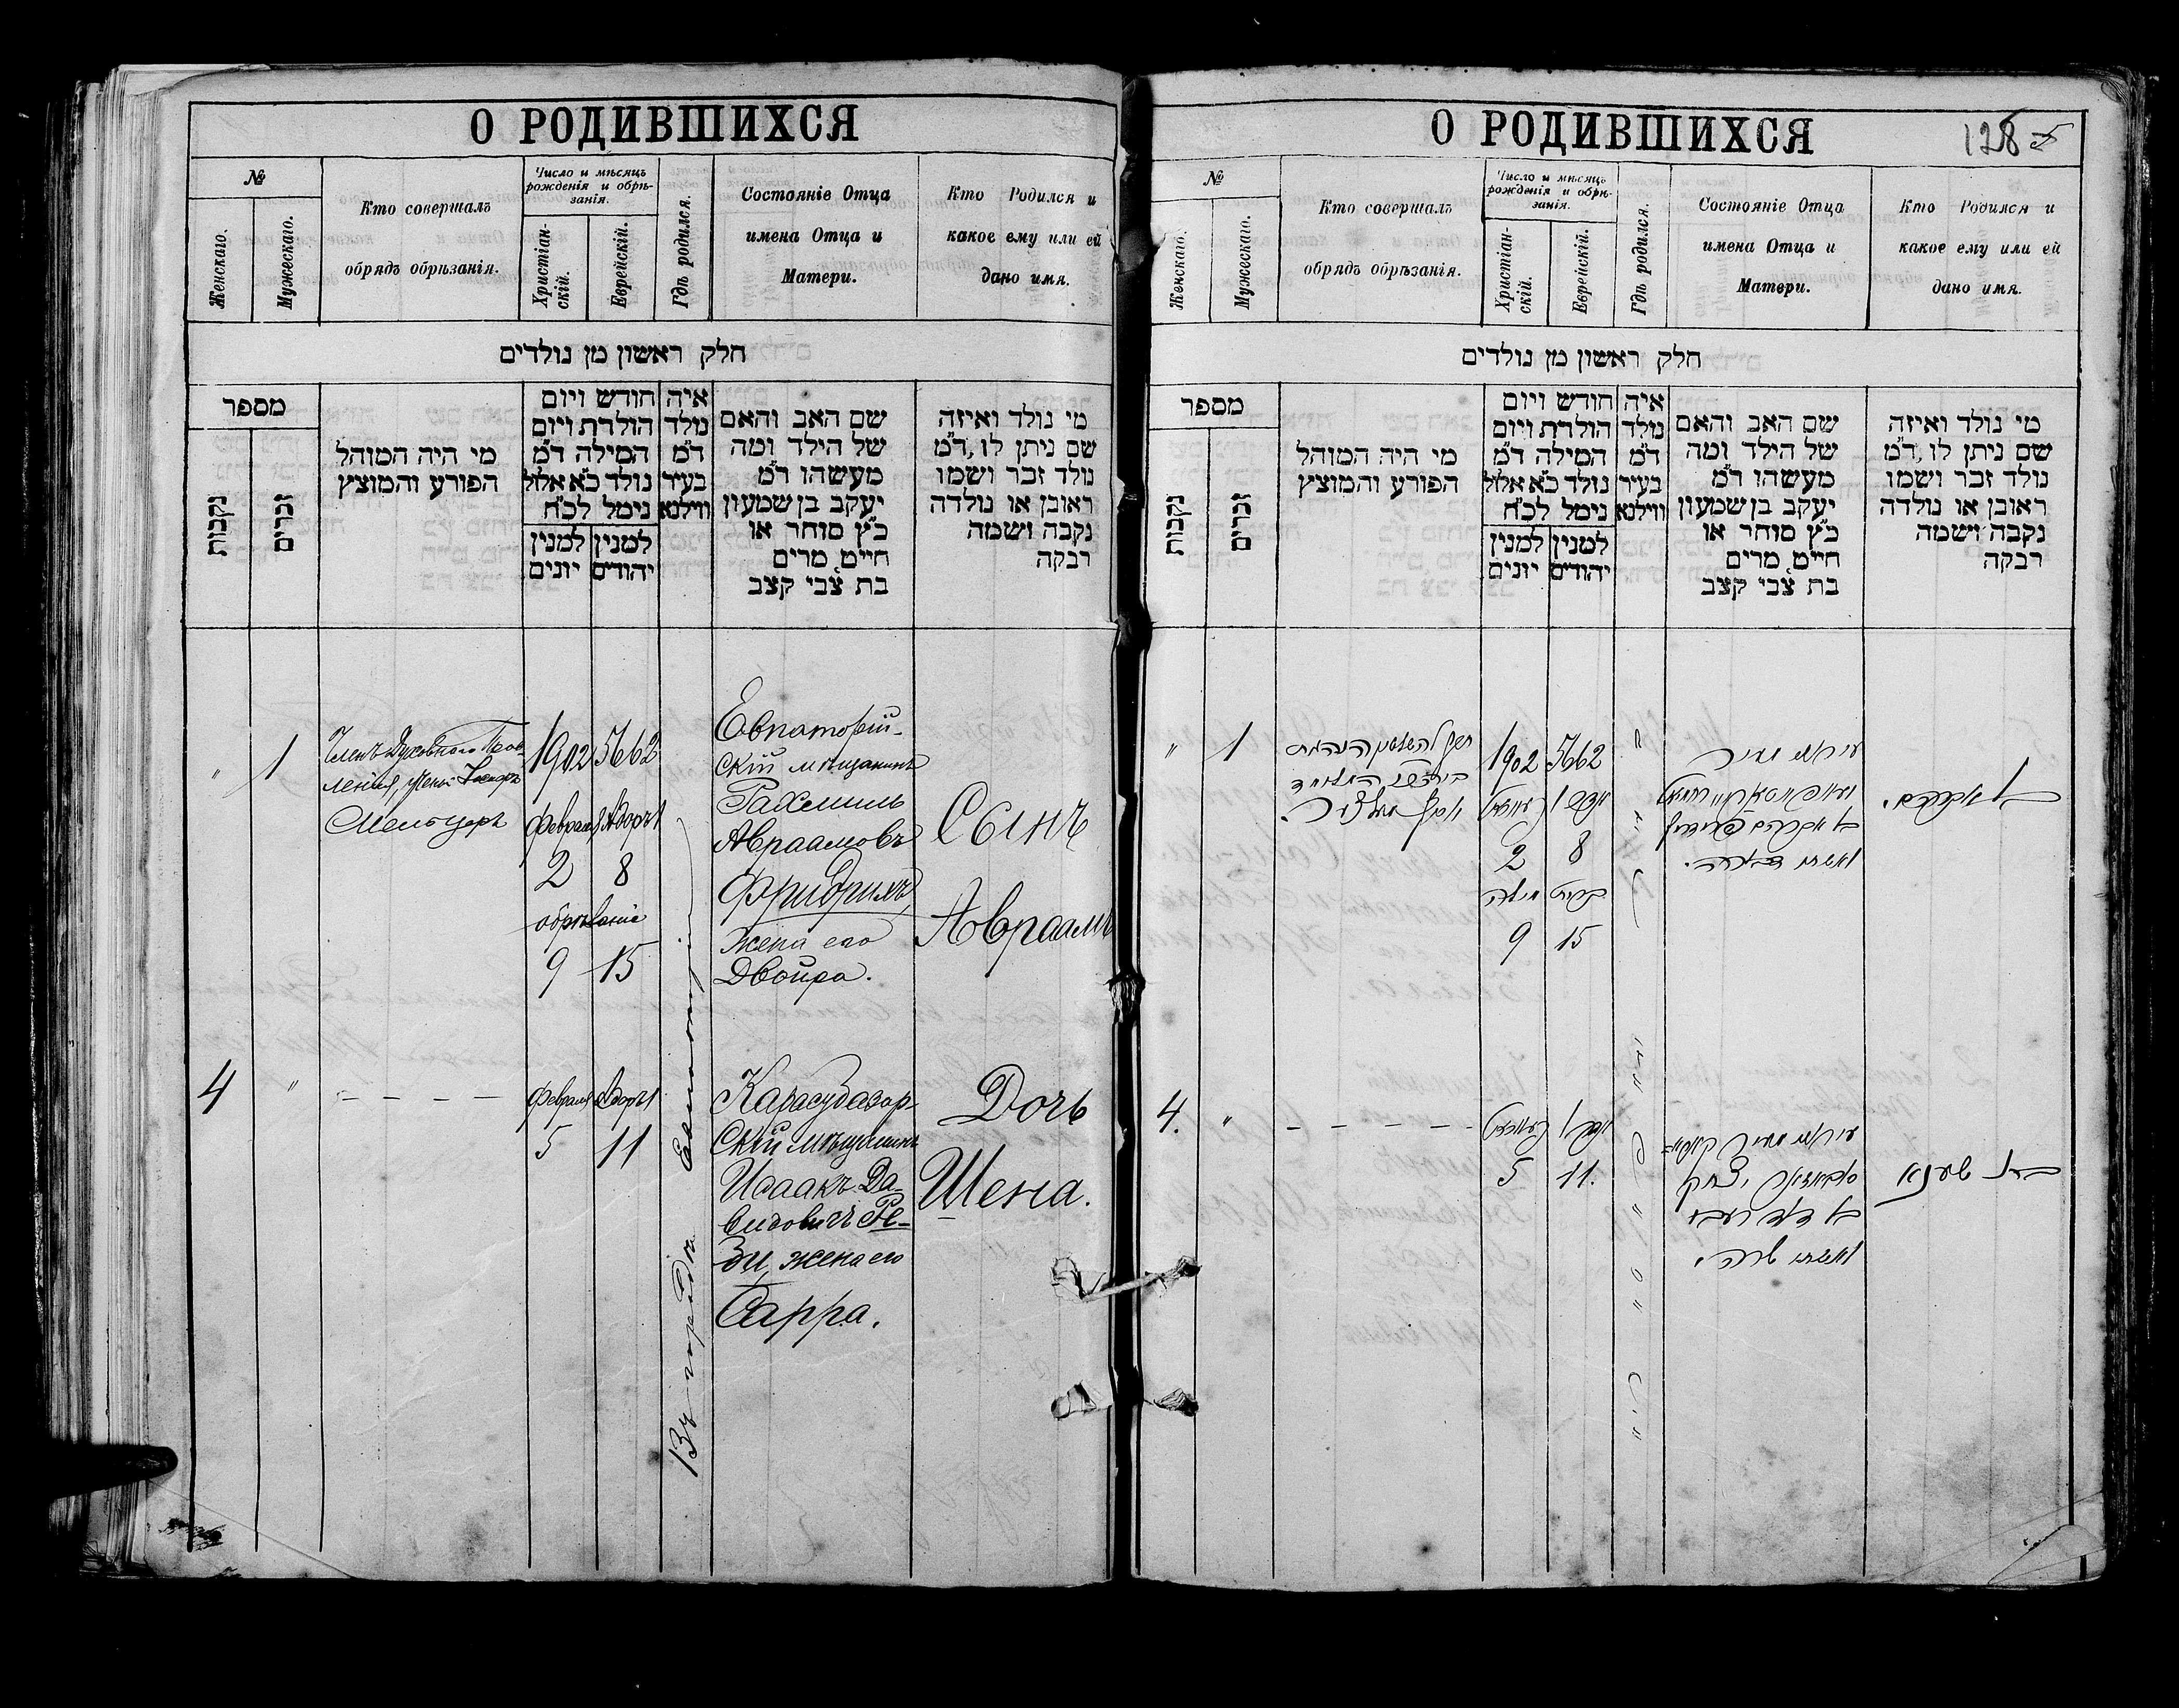 О РОДИВШИХСЯ
№
Женскаго.
Мужескаго.
Кто совершалъ
обрядъ обрѣзанія.
Число и мѣсяцъ
рожденія и обрѣ-
занія.
Христіан-
скій.
Еврейскій.
Гдѣ родился.
Состояніе Отца
имена Отца и
Матери.
Кто Родился и
какое ему или ей
дано имя.
חלק ראשון מן נולדים
מספר
נקבות
זכרים
מי היה המוהל
הפורע והמוצץ
חודש ויום
הולדת ויום
המילה ד״מ
נולד כ״א אלול
נימל לכ״ח
למנין יהודים
למנין יונים
איה
נולד
ד״מ
בעיר
ווילנא
שם האב והאם
של הילד ומה
מעשהו ד״מ
יעקב בן שמעון
כ״ץ סוחר או
חייט, מרים
בת צבי קצב
מי נולד ואיזה
שם ניתן לו, ד״מ
נולד זכר ושמו
ראובן או נולדה
נקבה ושמה
רבקה
" 1
Членъ Духовнаго Прав-
ленія, ученый
Мельцеръ
1902 5662
Февраля Адоръ 1
2 8
обрѣзаніе
9 15
Въ городѣ Евпаторіи
Евпаторій-
скій мѣщанинъ
Рахмиль
Авраамовъ
Фридрихъ,
жена его
Двойра.
Сынъ
Авраамъ
4 " - - - - -
Февраля Адоръ 1
5 11
Карасубазар-
скій мѣщанинъ
Исаакъ Да-
видовичъ Ре-
би, жена его
Сарра.
Дочь
Шена.
О РОДИВШИХСЯ
128
№
Женскаго.
Мужескаго.
Кто совершалъ
обрядъ обрѣзанія.
Число и мѣсяцъ
рожденія и обрѣ-
занія.
Христіан-
скій.
Еврейскій.
Гдѣ родился.
Состояніе Отца
имена Отца и
Матери.
Кто Родился и
какое ему или ей
дано имя.
חלק ראשון מן נולדים
מספר
נקבות
זכרים
מי היה המוהל
הפורע והמוצץ
חודש ויום
הולדת ויום
המילה ד״מ
נולד כ״א אלול
נימל לכ״ח
למנין יהודים
למנין יונים
איה
נולד
ד״מ
בעיר
ווילנא
שם האב והאם
של הילד ומה
מעשהו ד״מ
יעקב בן שמעון
כ״ץ סוחר או
חייט, מרים
בת צבי קצב
מי נולד ואיזה
שם ניתן לו, ד״מ
נולד זכר ושמו
ראובן או נולדה
נקבה ושמה
רבקה
" 1
1902 5662
אדר 1
2 8
מילה
9 15
בן אברהם
ואשתו דבורה.
4. " - - - - -
אדר 1
5 11.
יצחק
בן דוד
ואשתו שרה.
בת שענא